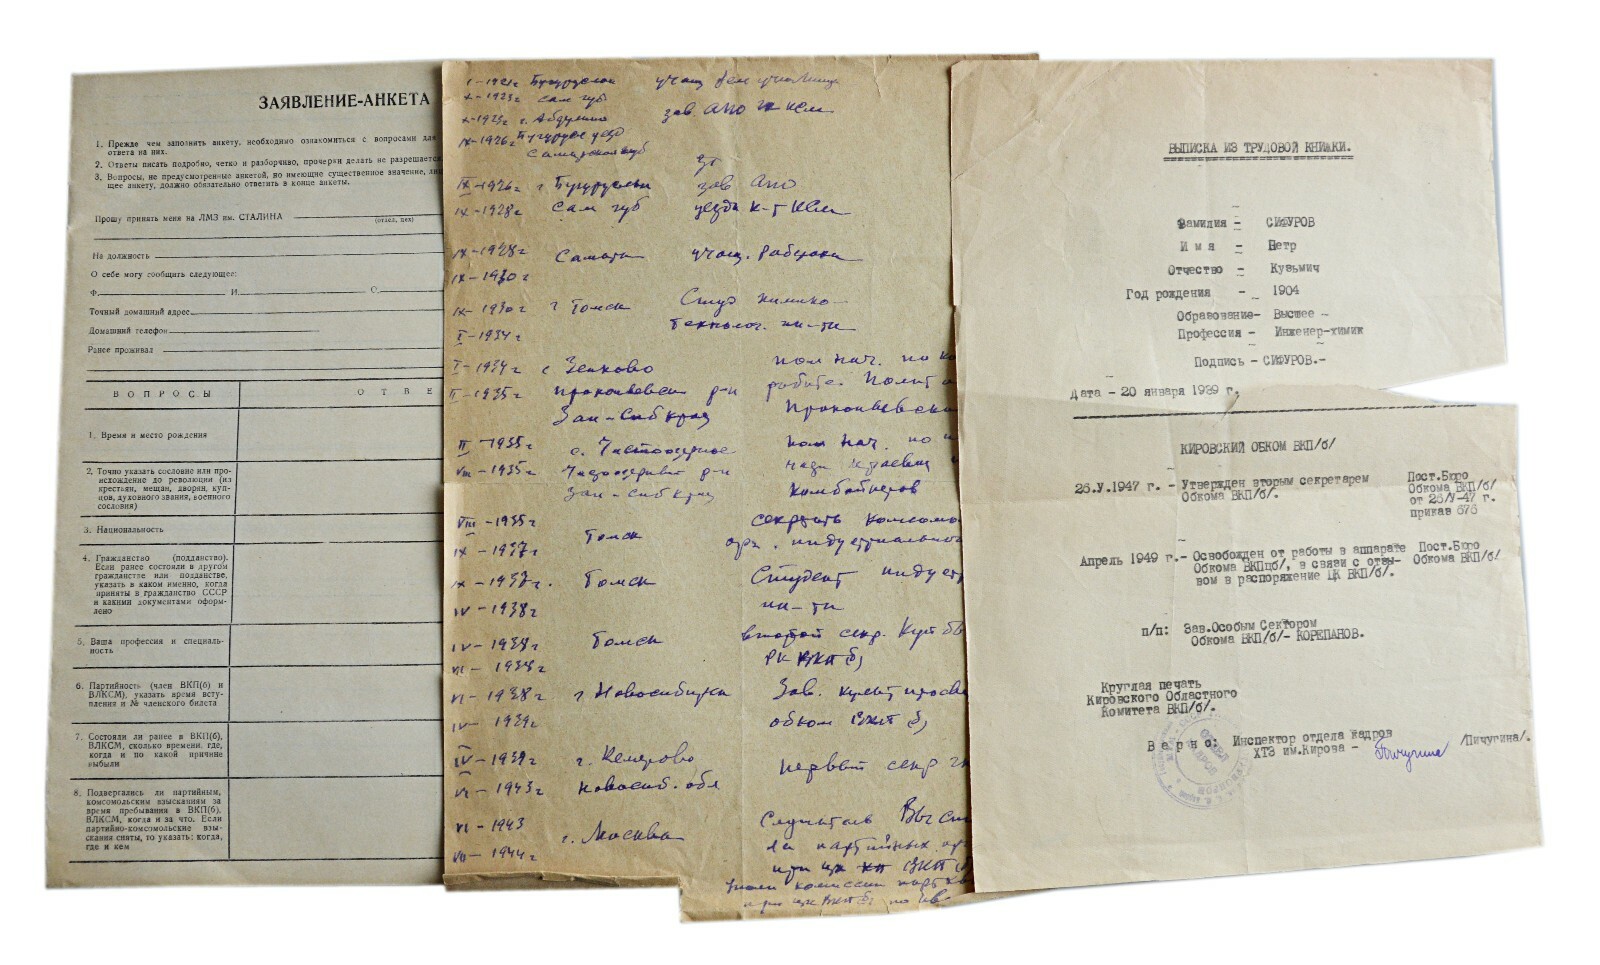 ЗАЯВЛЕНИЕ-АНКЕТА
1. Прежде чем заполнить анкету, необходимо ознакомиться с вопросами для
ответа на них.
2. Ответы писать подробно, четко и разборчиво, прочерки делать не разрешается
3. Вопросы, не предусмотренные анкетой, но имеющие существенное значение,
щее анкету, должно обязательно ответить в конце анкеты.
Прошу принять меня на ЛМЗ им. СТАЛИНА
(отдел, цех)
На должность
О себе могу сообщить следующее:
Ф. И. О.
Точный домашний адрес
Домашний телефон
Ранее проживал
ВОПРОСЫ ОТВЕ
1. Время и место рождения
2. Точно указать сословие или про-
исхождение до революции (из
крестьян, мещан, дворян, куп-
цов, духовного звания, военного
сословия)
3. Национальность
4. Гражданство (подданство).
Если ранее состояли в другом
гражданстве или подданстве,
указать в каком именно, когда
приняты в гражданство СССР
и какими документами оформ-
лено
5. Ваша профессия и специаль-
ность
6. Партийность (член ВКП(б) и
ВЛКСМ), указать время всту-
пления и № членского билета
7. Состояли ли ранее в ВКП(б),
ВЛКСМ, сколько времени, где,
когда и по какой причине
выбыли
8. Подвергались ли партийным,
комсомольским взысканиям за
время пребывания в ВКП(б),
ВЛКСМ, когда и за что. Если
партийно-комсомольские взы-
скания сняты, то указать: когда,
где и кем
I-1921г Бугуруслан
X-1923г Сам губ
X-1923г г. Абдулино зав. АПО
IX-1926г
IX-1926г г Бугуруслан зав АПО
IX-1928г Сам губ
IX-1928г Самара учащ. Рабфака
IX-1930г
IX-1930г г Томск Студ химико-
I-1934г технолог. ин-та
I-1934г с Зенково пом нач. по
II-1935г Прокопьевск р-н работе. Полит
Зап-Сиб край Прокопьевско
II-1935г с. Чистоозерное пом нач. по
VIII-1935г р-н
Зап-Сиб край комбайнеров
VIII-1935г Томск секретарь комсомо
IX-1937г орг. индустриального
IX-1937г. Томск Студент индустр
IV-1938г ин-та
IV-1938г Томск второй секр.
VI-1938г РК ВКП б)
VI-1938г г. Новосибирск Зав. культпросве
IV-1939г обком ВКП б)
IV-1939г г. Кемерово первый секр
VI-1943г Новосиб. обл
VI-1943 г. Москва Слушатель Высш
VII-1944г партийных ор
при цк ВКП
при цк ВКПб по
ВЫПИСКА ИЗ ТРУДОВОЙ КНИЖКИ.
Фамилия - СИФУРОВ
Имя - Петр
Отчество - Кузьмич
Год рождения - 1904
Образование- Высшее -
Профессия - Инженер-химик
Подпись - СИФУРОВ.-
Дата - 20 января 1939 г.
КИРОВСКИЙ ОБКОМ ВКП/б/
26.У.1947 г. - Утвержден вторым секретарем Пост.Бюро
Обкома ВКП/б/. Обкома ВКП/б/
от 26/У-47 г.
приказ 676
Апрель 1949 г.- Освобожден от работы в аппарате Пост.Бюро
Обкома ВКПцб/, в связи с отзы- Обкома ВКП/б/
вом в распоряжение ЦК ВКП/б/.
п/п: Зав.Особым Сектором
Обкома ВКП/б/- КОРЕПАНОВ.
Круглая печать
Кировского Областного
Комитета ВКП/б/.
Верно: Инспектор отдела кадров
ХТЗ им.Кирова - Пичугина /Пичугина/.
ОТДЕЛ
КАДРОВ